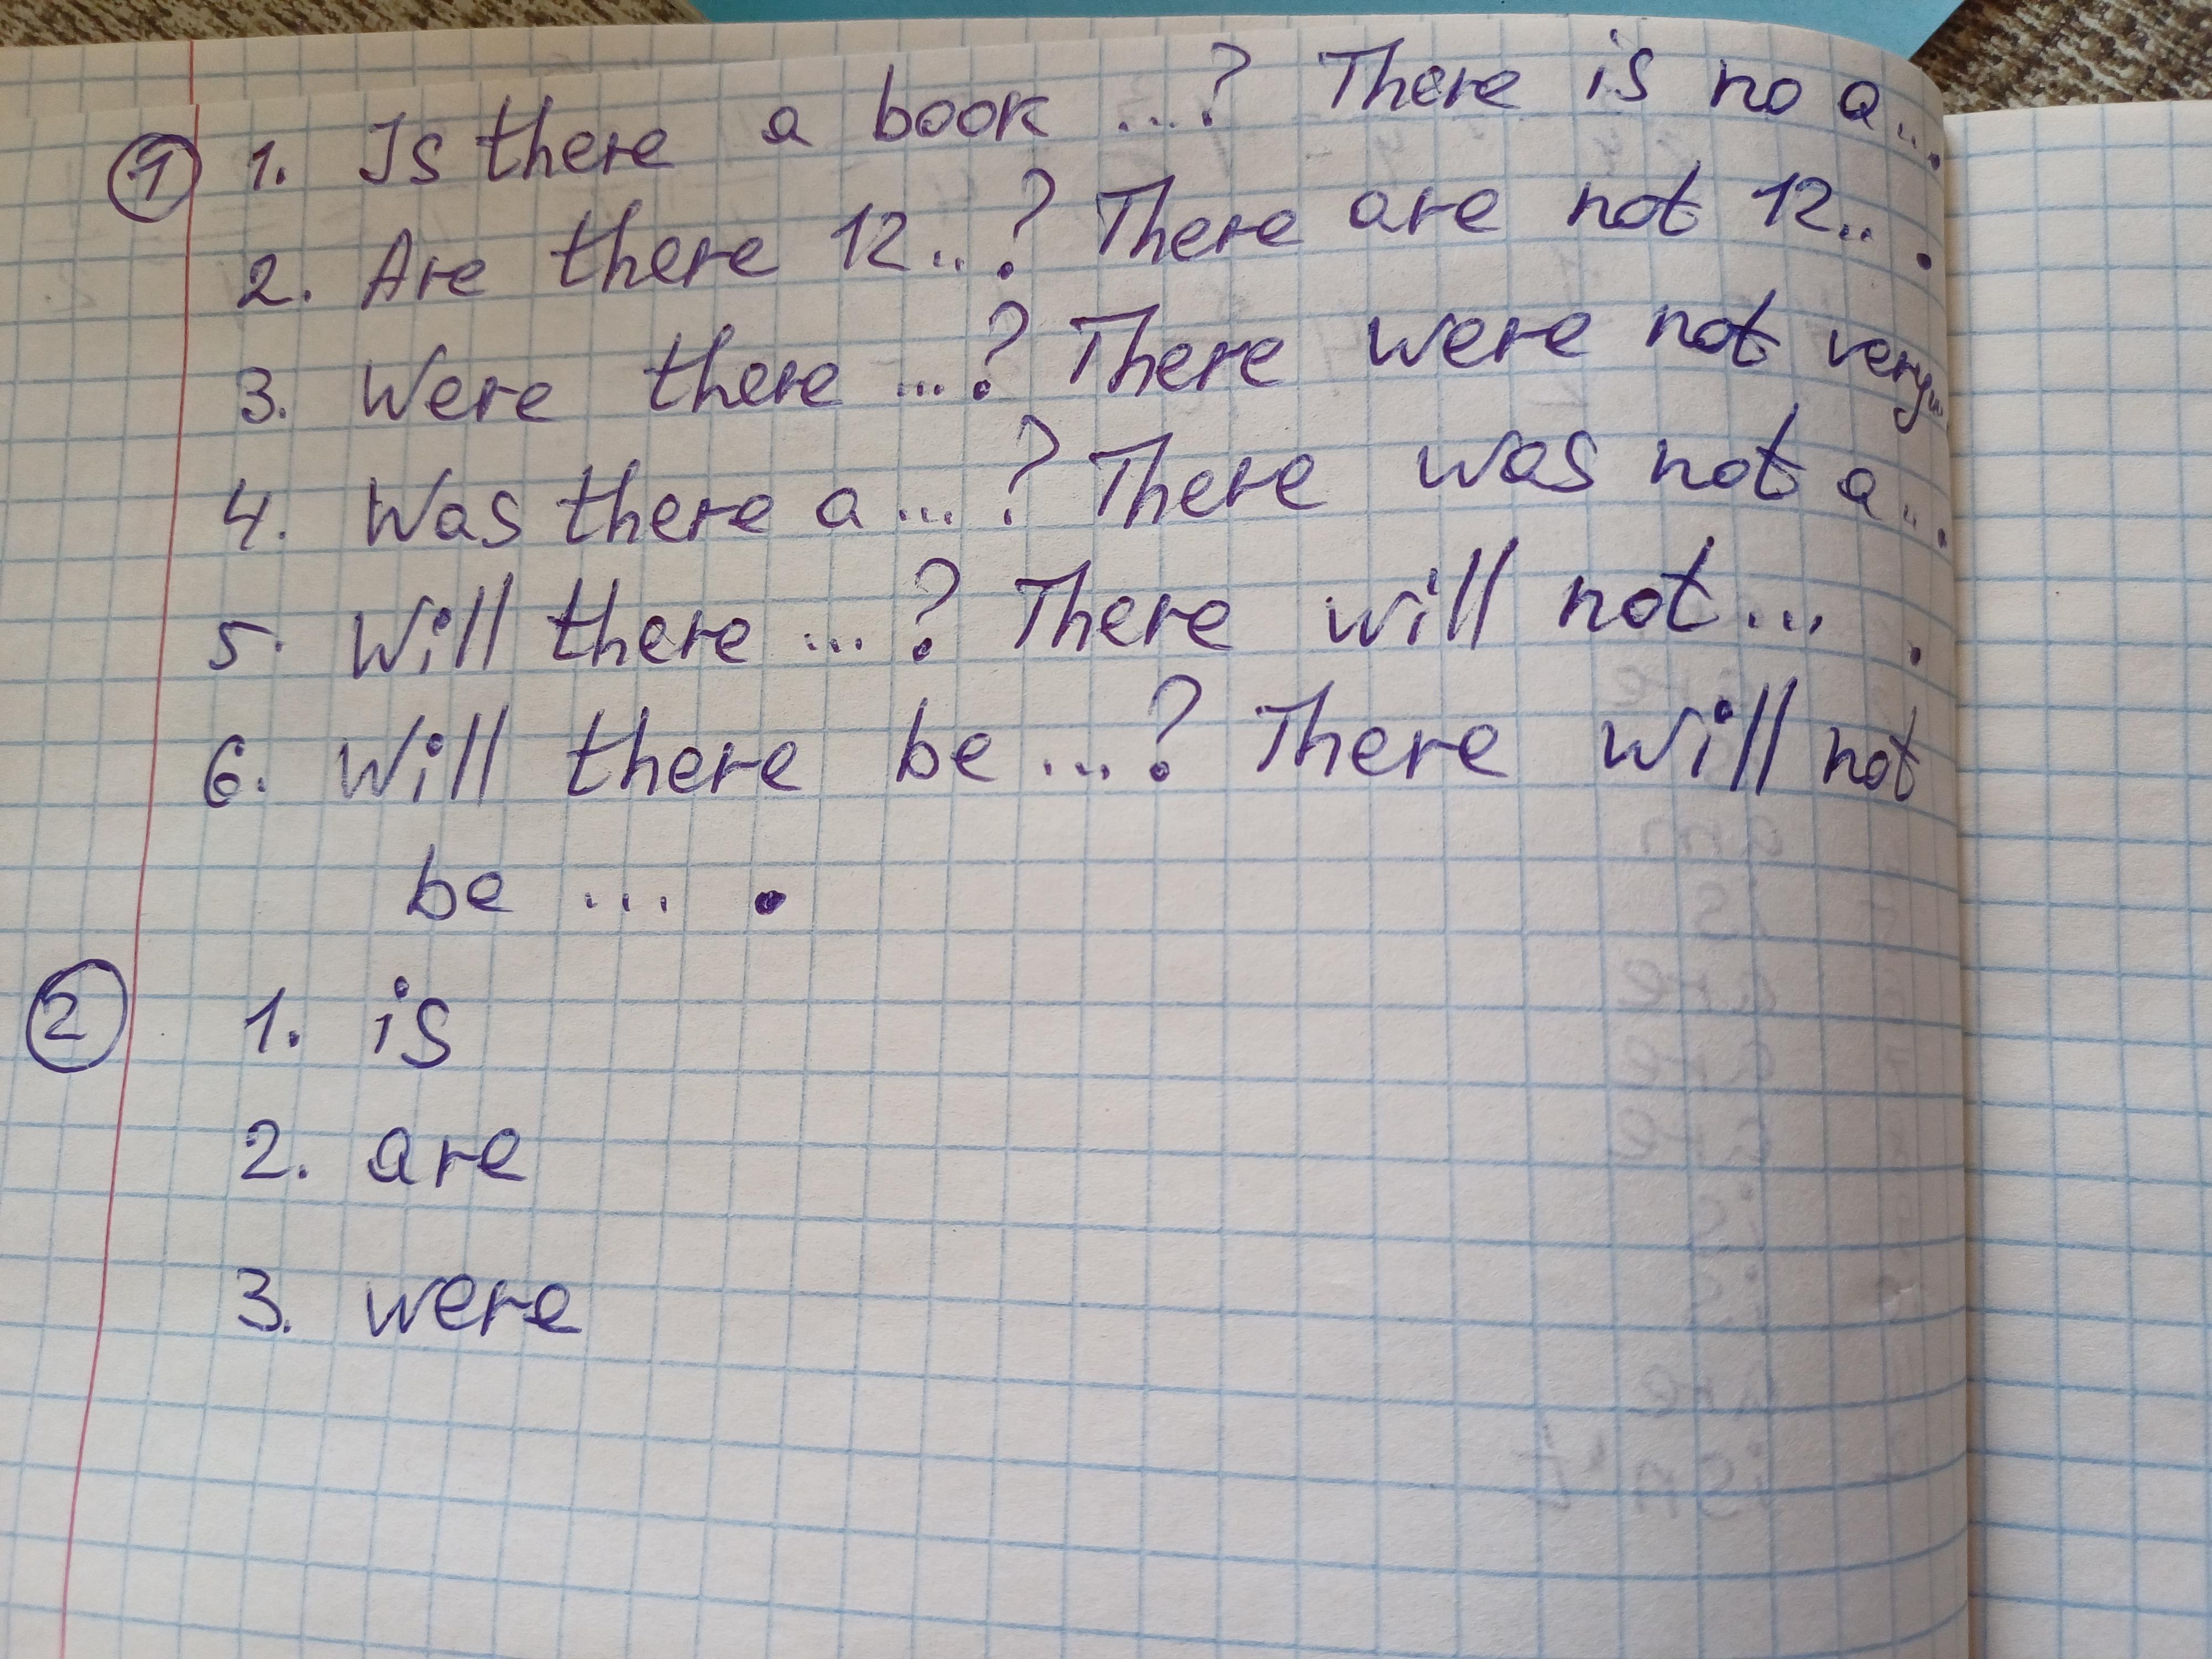 ① 1. Is there a book ...? There is no a... .
2. Are there 12..? There are not 12.. .
3. Were there ...? There were not very...
4. Was there a ...? There was not a... .
5. Will there ...? There will not ... .
6. Will there be ...? There will not
be ... .
② 1. is
2. are
3. were